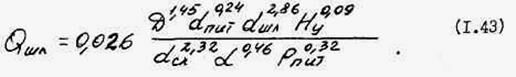 Qшл = 0,026 Д^1,45 dпит^0,24 dшл^2,86 Hу^0,09 / dсл^2,32 α^0,46 Pпит^0,32 . (I.43)